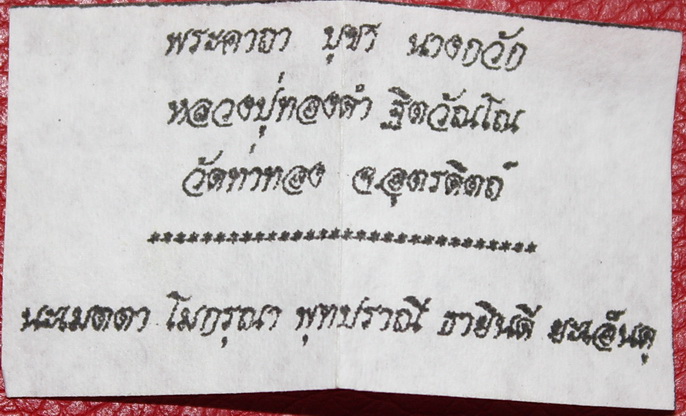 พระคาถา บูชา นางกวัก
หลวงปู่ทองดำ ฐิตวัณโณ
วัดท่าทอง จ.อุตรดิตถ์
*********************************
นะเมตตา โมกรุณา พุทปราณี ธายินดี ยะเอ็นดู